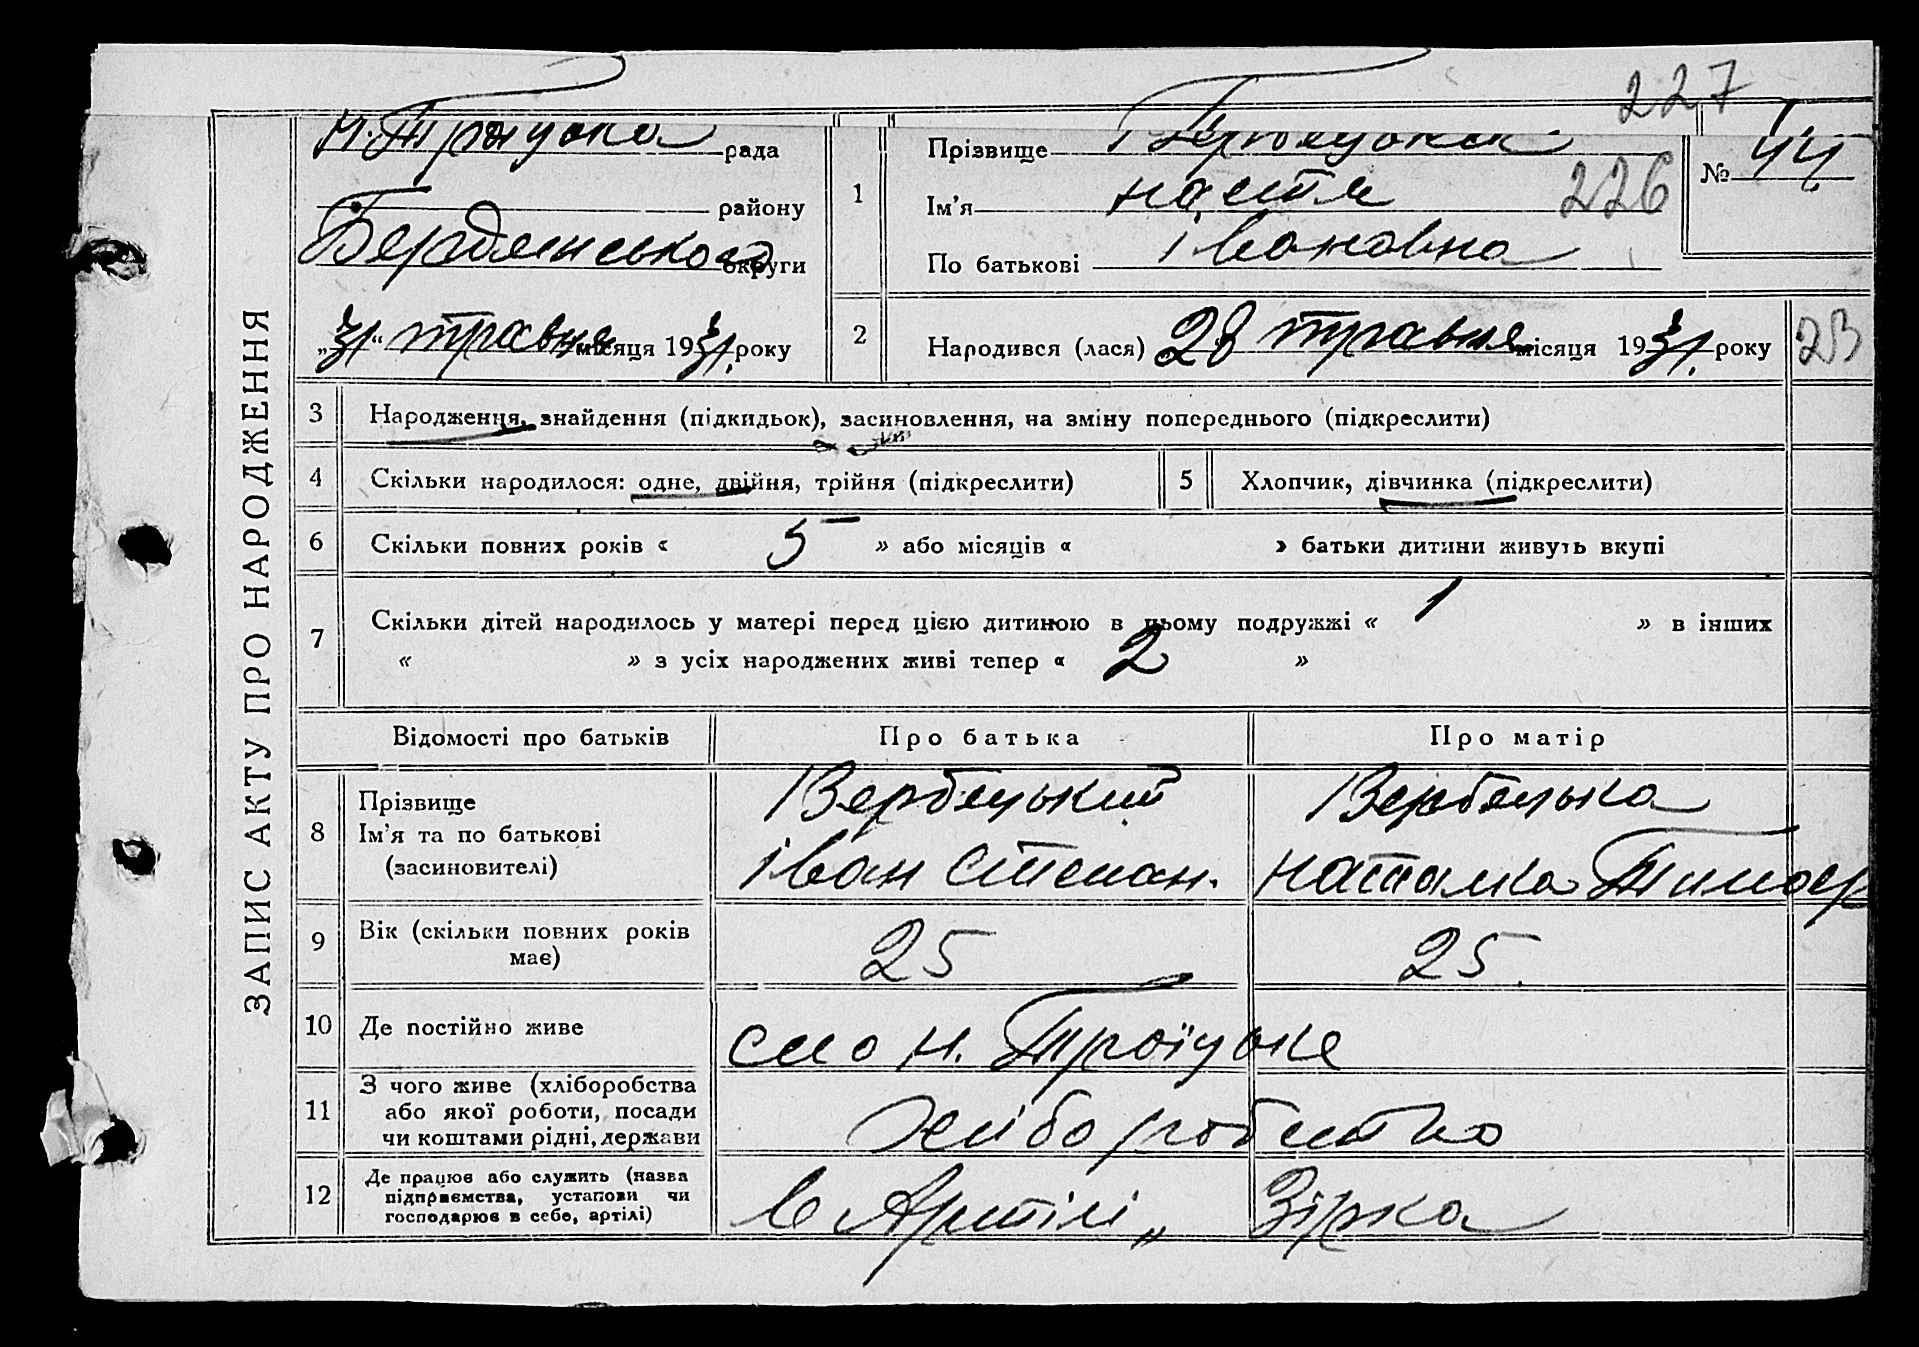 227
Н. Троїцька рада
району
Бердянського округи
„31“ травня місяця 1931 року
1
Прізвище
Ім'я Настя
226
По батькові Івановна
№ 44
2
Народився (лася) 28 травня місяця 1931 року
23
ЗАПИС АКТУ ПРО НАРОДЖЕННЯ
3 Народження, знайдення (підкидьок), засиновлення, на зміну попереднього (підкреслити)
4 Скільки народилося: одне, двійня, трійня (підкреслити)
5 Хлопчик, дівчинка (підкреслити)
6 Скільки повних років « 5 » або місяців « » батьки дитини живуть вкупі
7 Скільки дітей народилось у матері перед цією дитиною в цьому подружжі « 1 » в інших
« » з усіх народжених живі тепер « 2 »
Відомості про батьків
Про батька
Про матір
8
Прізвище
Ім'я та по батькові
(засиновителі)
Вербецький
Іван Степан.
Вербецька
Наталка Тимоф
9
Вік (скільки повних років
має)
25
25
10 Де постійно живе
село Н. Троїцьке
11
З чого живе (хліборобства
або якої роботи, посади
чи коштами рідні, держави
Хліборобство
12
Де працює або служить (назва
підприємства, установи чи
господарює в себе, артілі)
в Артілі „ Зірка